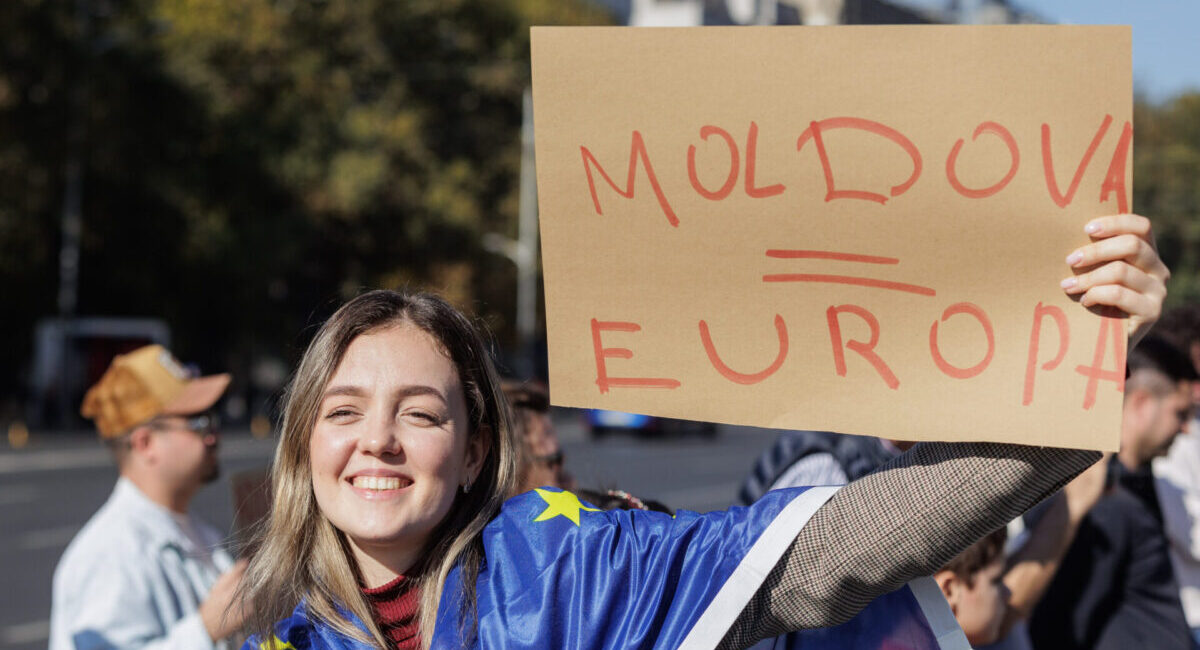 MOLDOVA
=
EUROPA